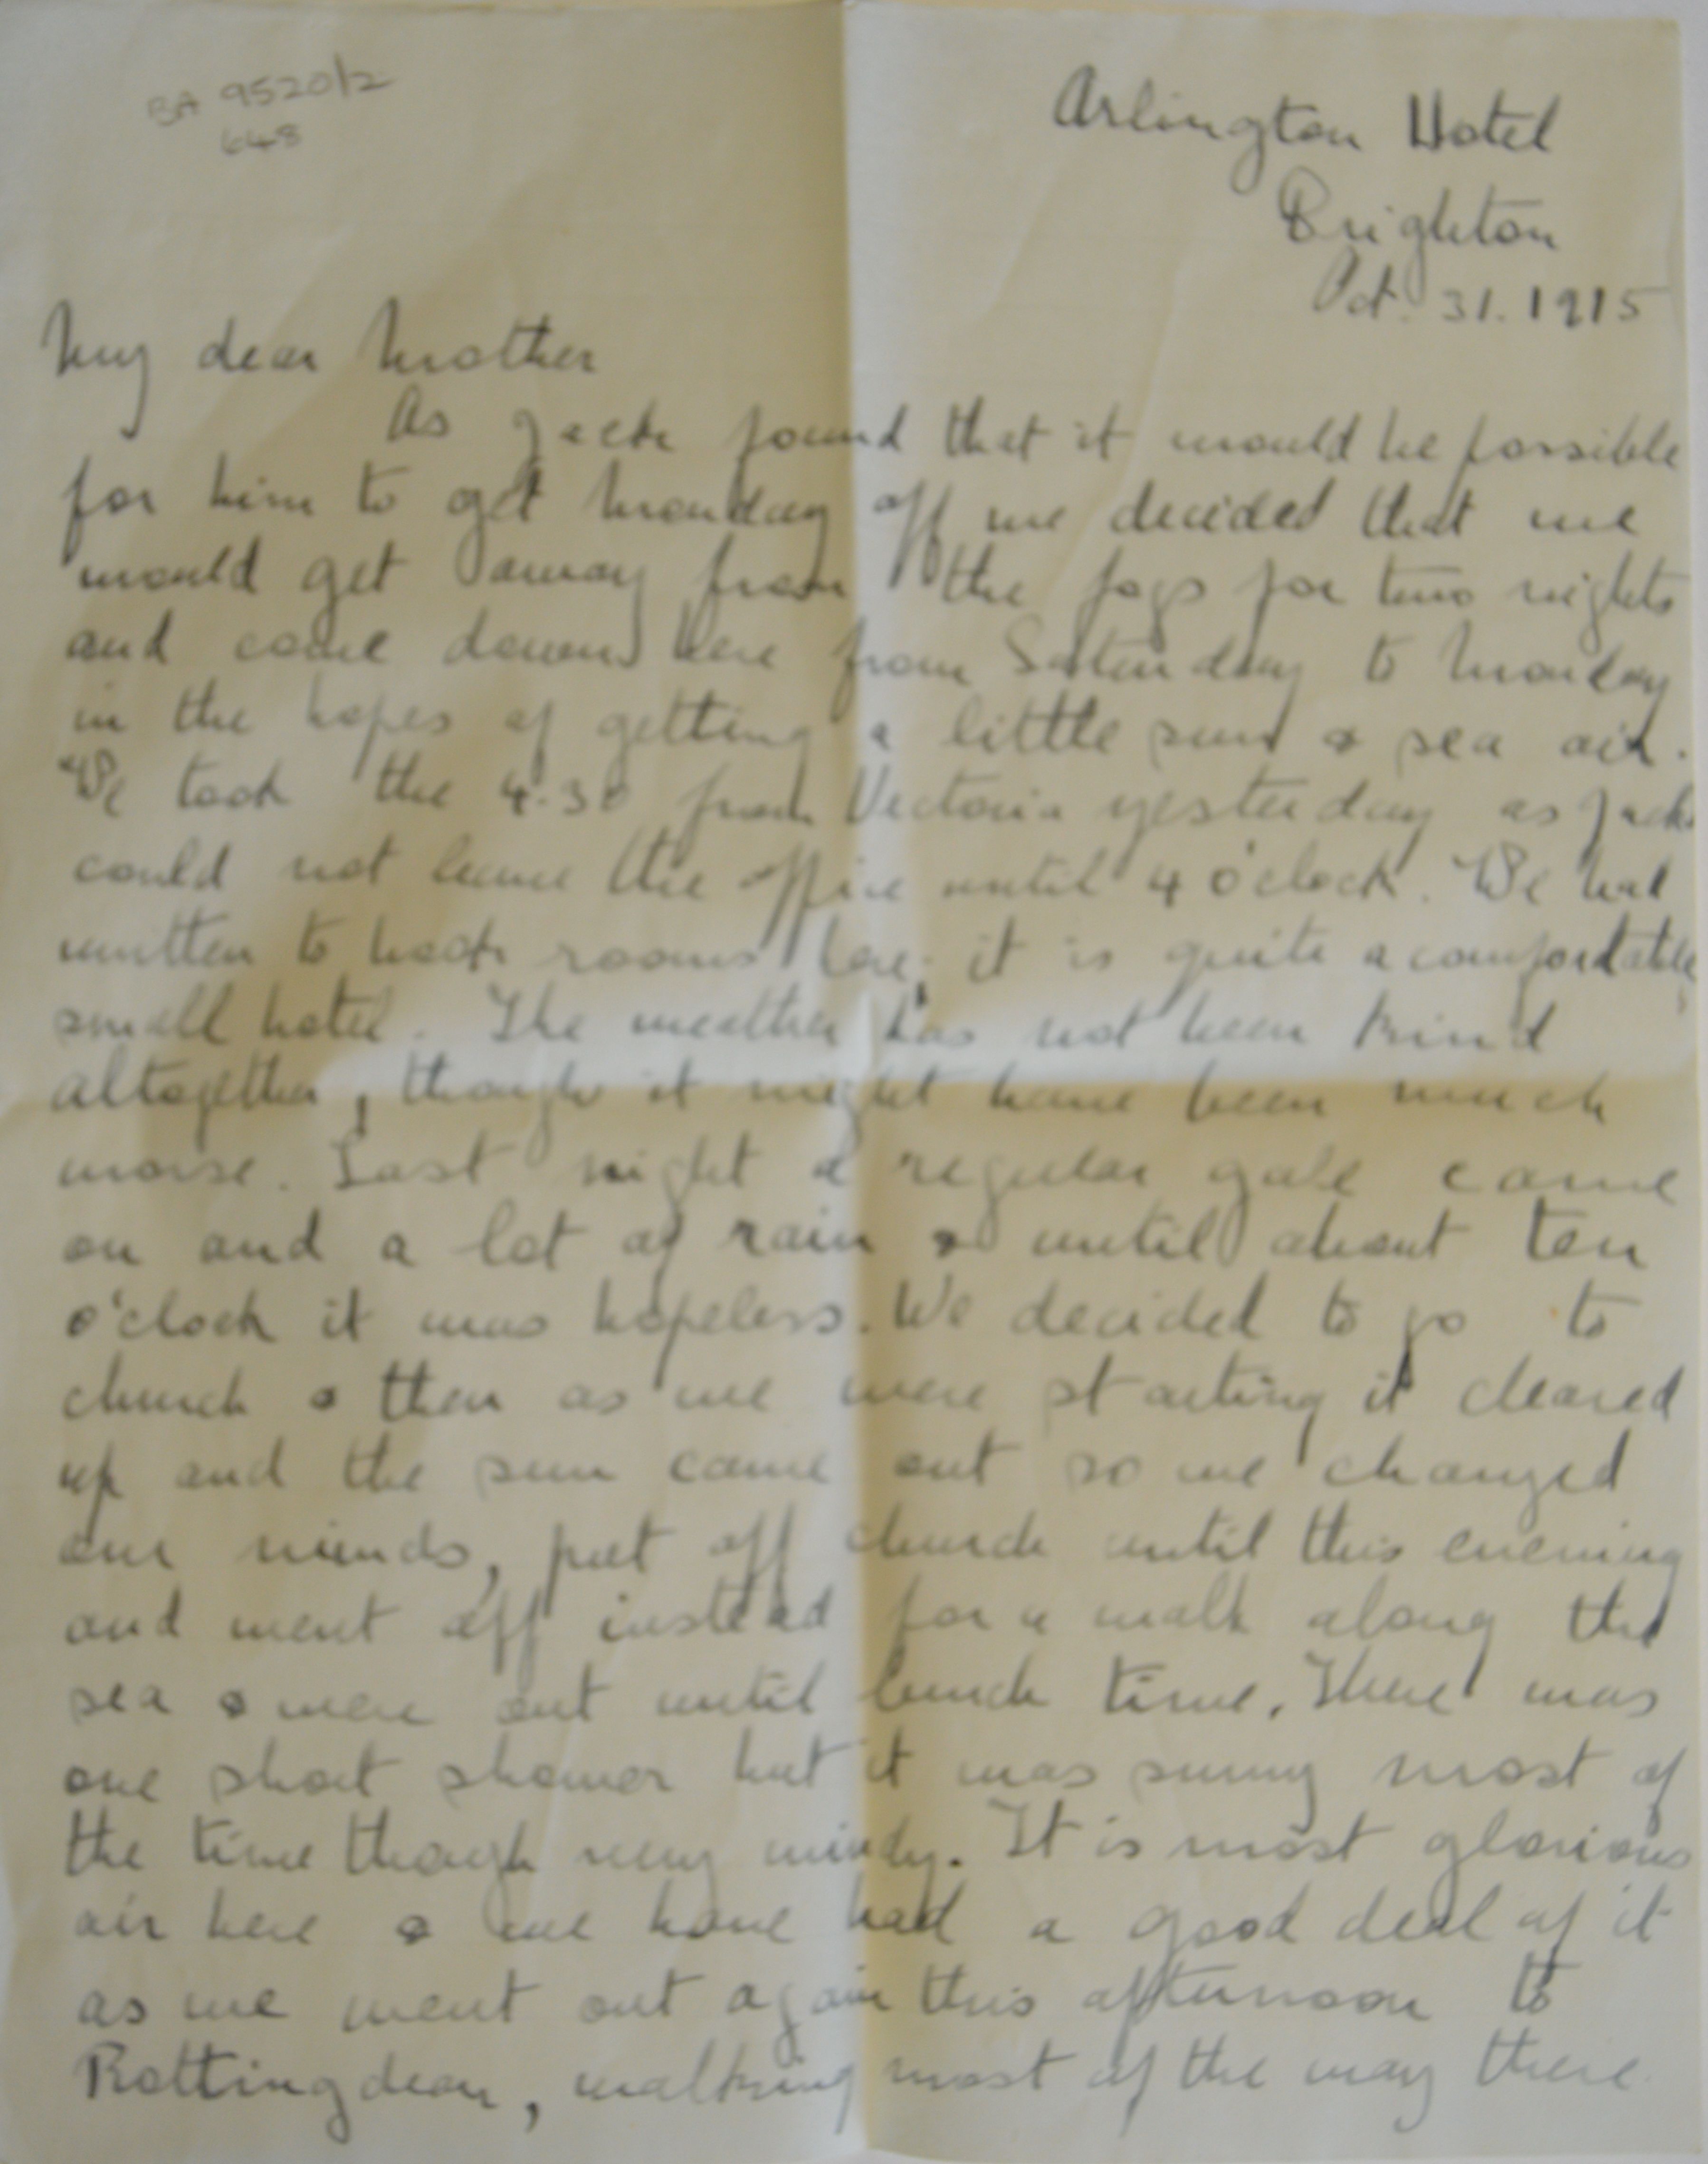 BA 9520/2
648
Arlington Hotel
Brighton
Oct. 31. 1915
My dear Mother
As Jack found that it would be possible
for him to get Monday off we decided that we
would get away from the fogs for two nights
and come down here from Saturday to Monday
in the hopes of getting a little sun & sea air.
We took the 4.30 from Victoria yesterday as Jack
could not leave the office until 4 o'clock. We had
written to book rooms here; it is quite a comfortable
small hotel. The weather has not been kind
altogether, though it might have been much
worse. Last night a regular gale came
on and a lot of rain & until about ten
o'clock it was hopeless. We decided to go to
church & then as we were starting it cleared
up and the sun came out so we changed
our minds, put off church until this evening
and went off instead for a walk along the
sea & were out until lunch time. There was
one short shower but it was sunny most of
the time though very windy. It is most glorious
air here & we have had a good deal of it
as we went out again this afternoon to
Rottingdean, walking most of the way there.